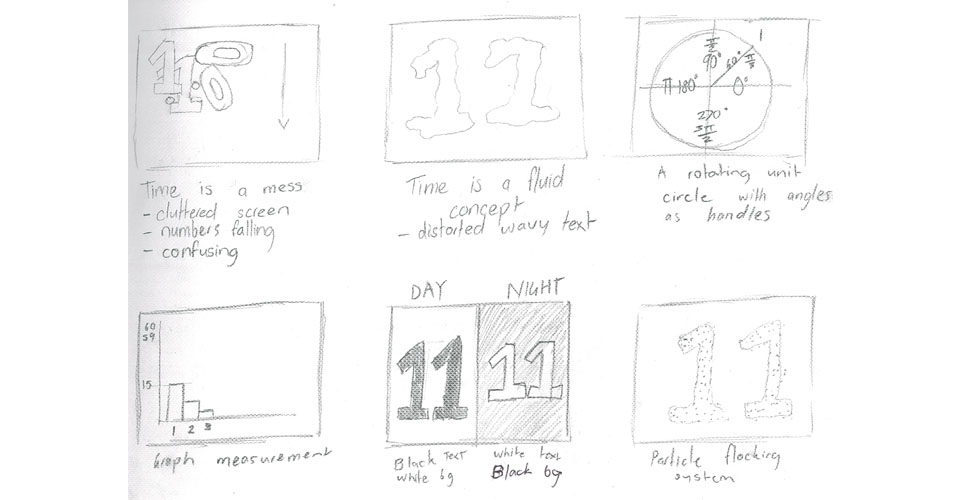 11
00
Time is a mess
- cluttered screen
- numbers falling
- confusing
11
Time is a fluid
concept
- distorted wavy text
π/2
1
90°
60° π/3
π 180°
0°
270°
3π/2
A rotating unit
circle with angles
as handles
60
59
15
1 2 3
Graph measurement
DAY
NIGHT
11
11
Black TEXT
white bg
white text
Black bg
11
Particle flocking
system